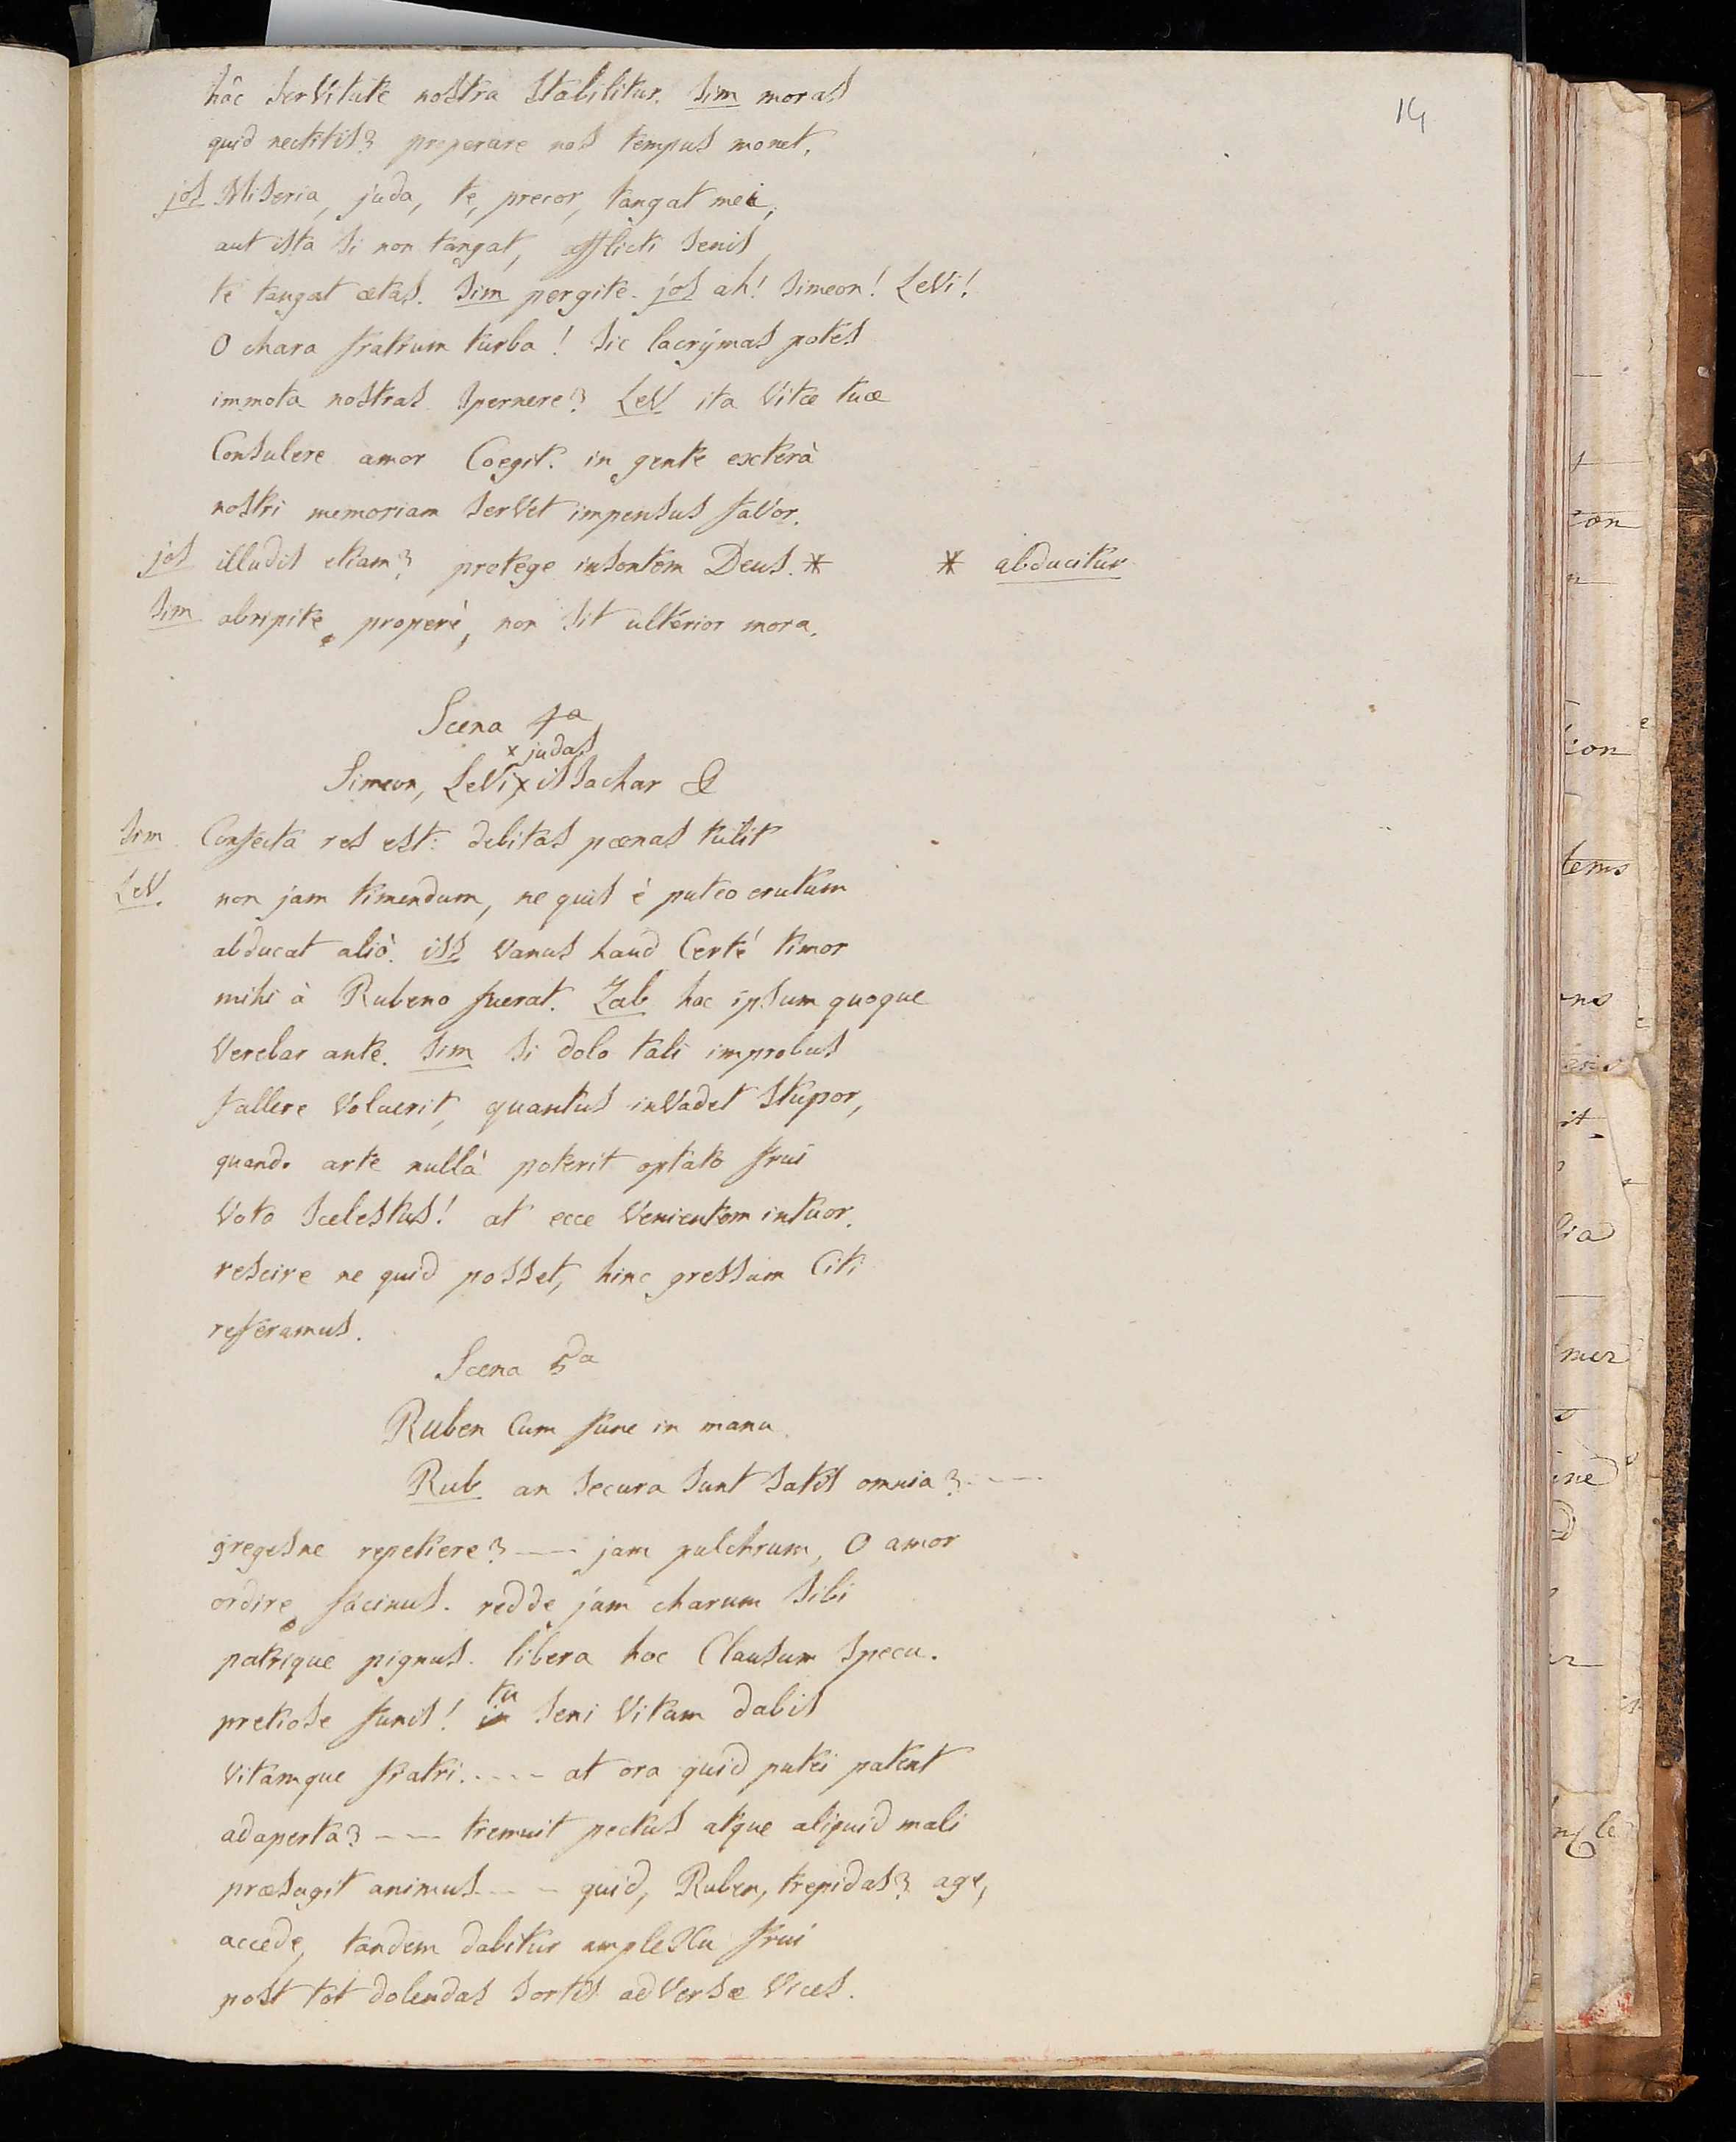 14
hâc serVitute nostra stabilitur. Sim moras
quid nectitis? properare nos tempus monet.
jos Miseria, juda, te, precor, tangat mei,
aut ista si non tangat, afflicti senis
te tangat ætas. Sim pergite. jos ah! Simeon! LeVi!
O chara fratrum turba! sic lacrÿmas potes
immota nostras spernere? LeV ita Vitæ tuæ
Consulere amor Coegit. in gente exterâ
nostri memoriam serVet impensus faVor.
jos illudis etiam? protege insontem Deus. * * abducitur
Sim abripite properè, non sit ulterior mora.
Scena 4a
x judas
Simeon, LeVi, x issachar &
Sim Confecta res est: debitas pænas tulit
LeV. non jam timendum, ne quis è puteo erutum
abducat aliò. iss Vanus haud Certè timor
mihi à Rubeno fuerat. Zab hoc ipsum quoque
Verebar ante. Sim si dolo tali improbus
fallere Voluerit, quantus inVadet stupor,
quando arte nullà poterit optato frui
Voto scelestus! at ecce Venientem intuor.
rescire ne quid posset, hinc gressum Citi
referamus.
Scena 5a
Ruben Cum fune in manu.
Rub an secura sunt satis omnia? ----
gregesne repetiere? ---- jam pulchrum, O amor
ordire facinus. redde jam charum sibi
patrique pignus. libera hoc Clausum specu.
tu
pretiose funis! in seni Vitam dabis
Vitamque fratri. ---- at ora quid putei patent
adaperta? ---- tremuit pectus atque aliquid mali
præsagit animus ---- quid, Ruben, trepidas? age,
accede, tandem dabitur ampleXu frui
post tot dolendas sortis adVersæ Vices.